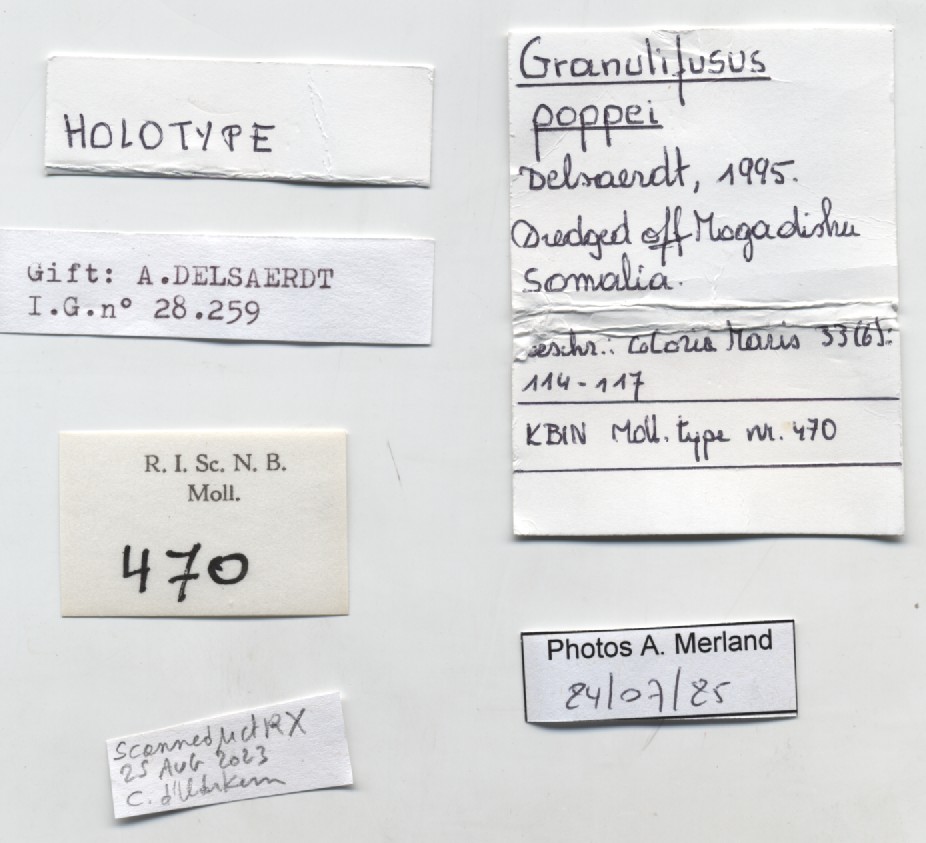 HOLOTYPE
Gift: A.DELSAERDT
I.G.n° 28.259
R. I. Sc. N. B.
Moll.
470
Scanned µct RX
25 AUG 2023
C.
Granulifusus
poppei
Delsaerdt, 1995.
Dredged off Mogadishu
Somalia.
Gloria Maris 33(6):
114-117
KBIN Moll. type nr. 470
Photos A. Merland
24/07/25